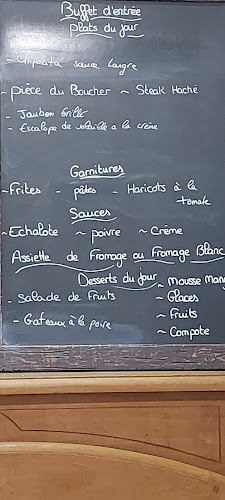 Buffet d'entrée
plats du jour
- Chipolata sauce Langre
- pièce du Boucher ~ Steak Haché
- Jambon Grillé
- Escalope de volaille a la crème
Garnitures
~ Frites - pâtes - Haricots à la
tomate
Sauces
~ Echalote ~ poivre ~ Crème
Assiette de Fromage ou Fromage Blanc
Desserts du Jour ~ Mousse Mang
- Salade de Fruits ~ Glaces
~ Fruits
- Gateaux à la poire
~ Compote